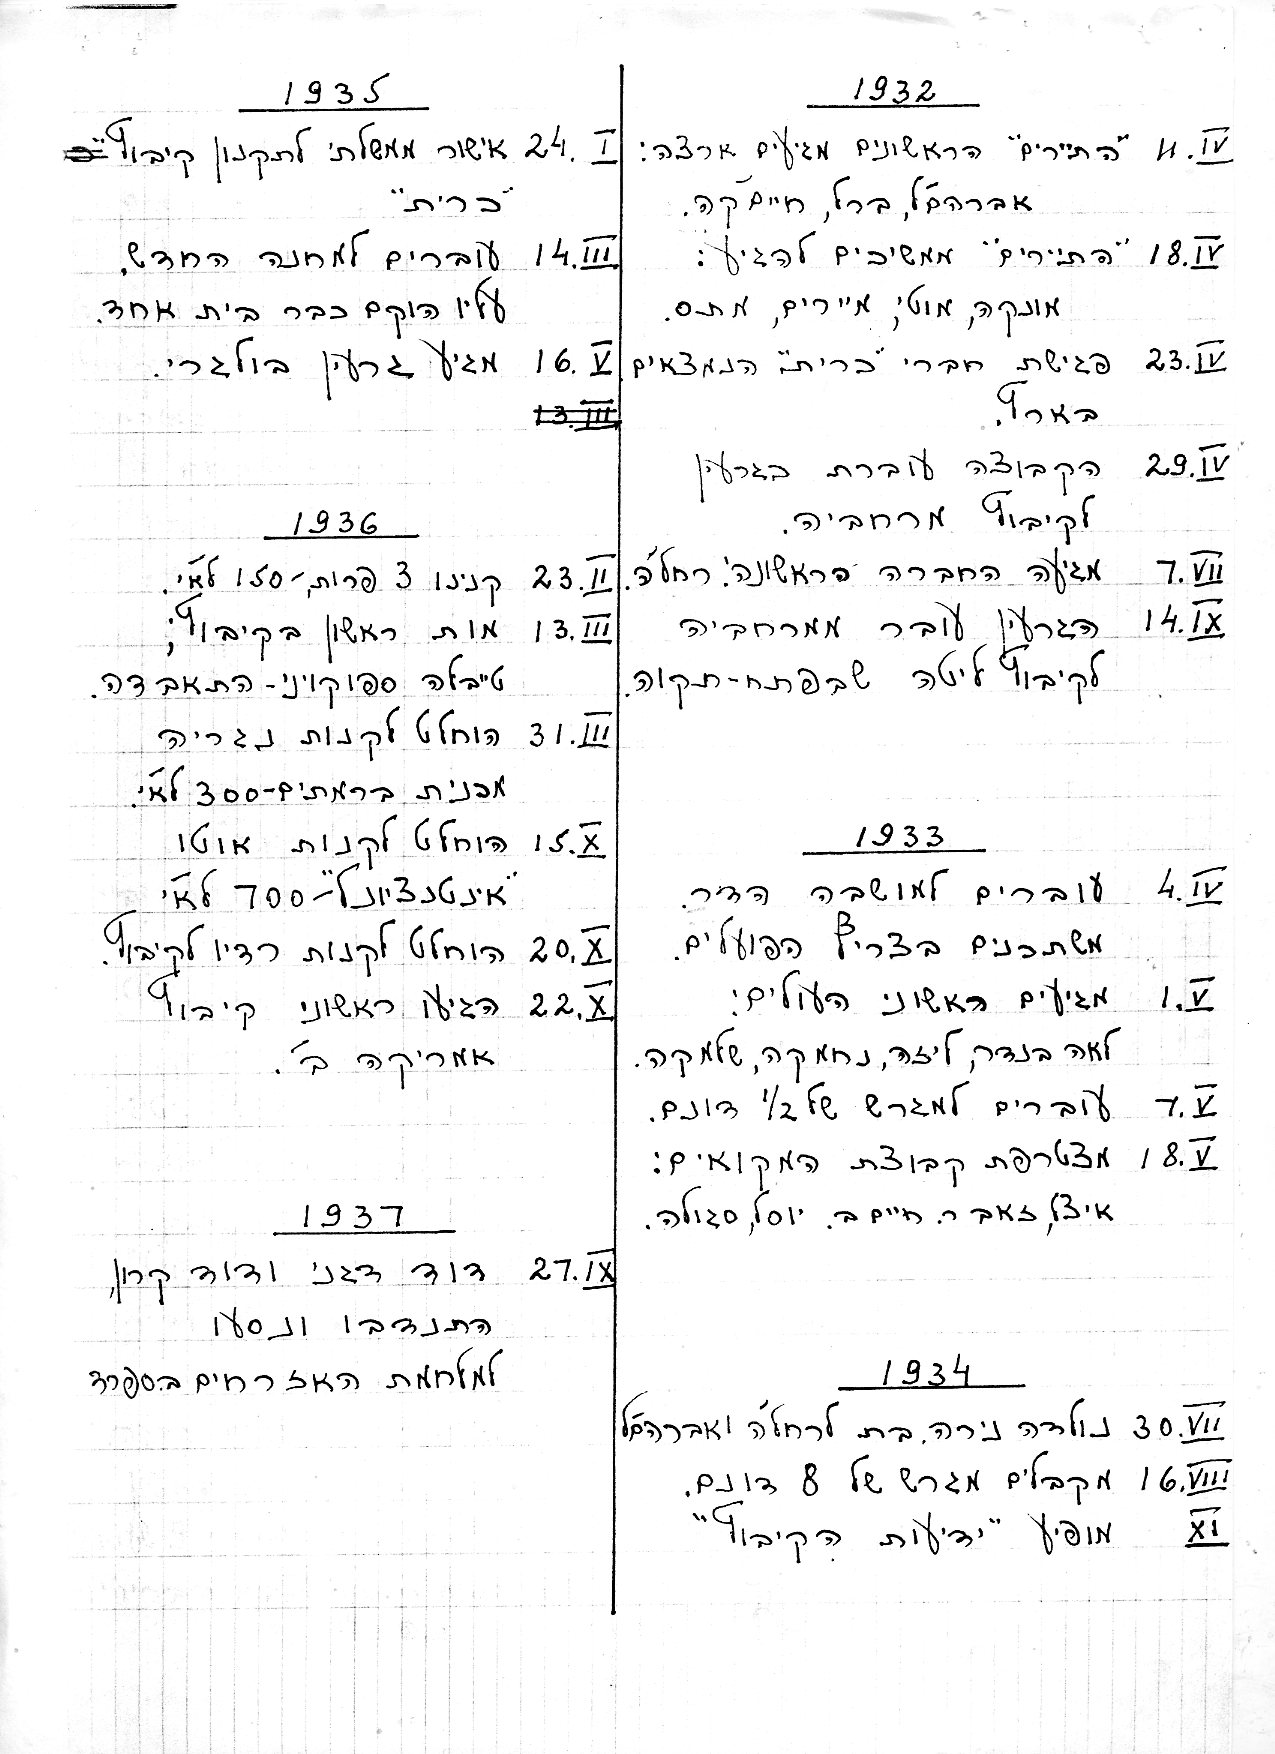 1932
11.IV "התיירים" הראשונים מגיעים ארצה:
אברהמ'ל, ברל, חיימ'קה.
18.IV "התיירים" ממשיכים להגיע:
מונקה, מוטי, מיירים, מתס.
23.IV פגישת חברי "כרית" הנמצאים
בארץ.
29.IV הקבוצה עוברת כגרעין
לקיבוץ מרחביה.
7.VII מגיעה החברה הראשונה: רחל'ה.
14.IX הגרעין עובר ממרחביה
לקיבוץ ליטה שבפתח-תקוה.
1933
4.IV עוברים למושבה הדר.
משתכנים בצריף הפועלים.
1.V מגיעים ראשוני העולים:
לאה בנדר, ליזה, נחמקה, שלמקה.
7.V עוברים למגרש של 1/2 דונם.
18.V מצטרפת קבוצת המקואים:
איצל, זאב ר. חיים ב. יוסל, סגולה.
1934
30.VII נולדה נירה, בת לרחל'ה ואברהמ'ל
16.VIII מקבלים מגרש של 8 דונם.
XI מופיע "ידיעות הקיבוץ"
1935
24.I אישור ממשלתי לתקנון קיבוץ
"כרית"
14.III עוברים למחנה החדש,
עליו הוקם כבר בית אחד.
16.V מגיע גרעין בולגרי.
13.III
1936
23.II קנינו 3 פרות, -150 לא"י.
13.III מות ראשון בקיבוץ;
טייבלה ספוקויני - התאבדה.
31.III הוחלט לקנות נגריה
מכנית ברמתים -300 לא"י.
15.X הוחלט לקנות אוטו
"אינטנציונל" -700 לא"י
20.X הוחלט לקנות רדיו לקיבוץ.
22.X הגיעו ראשוני קיבוץ
אמריקה ב'.
1937
27.IX דוד דגני ודוד קרון,
התנדבו ונסעו
למלחמת האזרחים בספרד